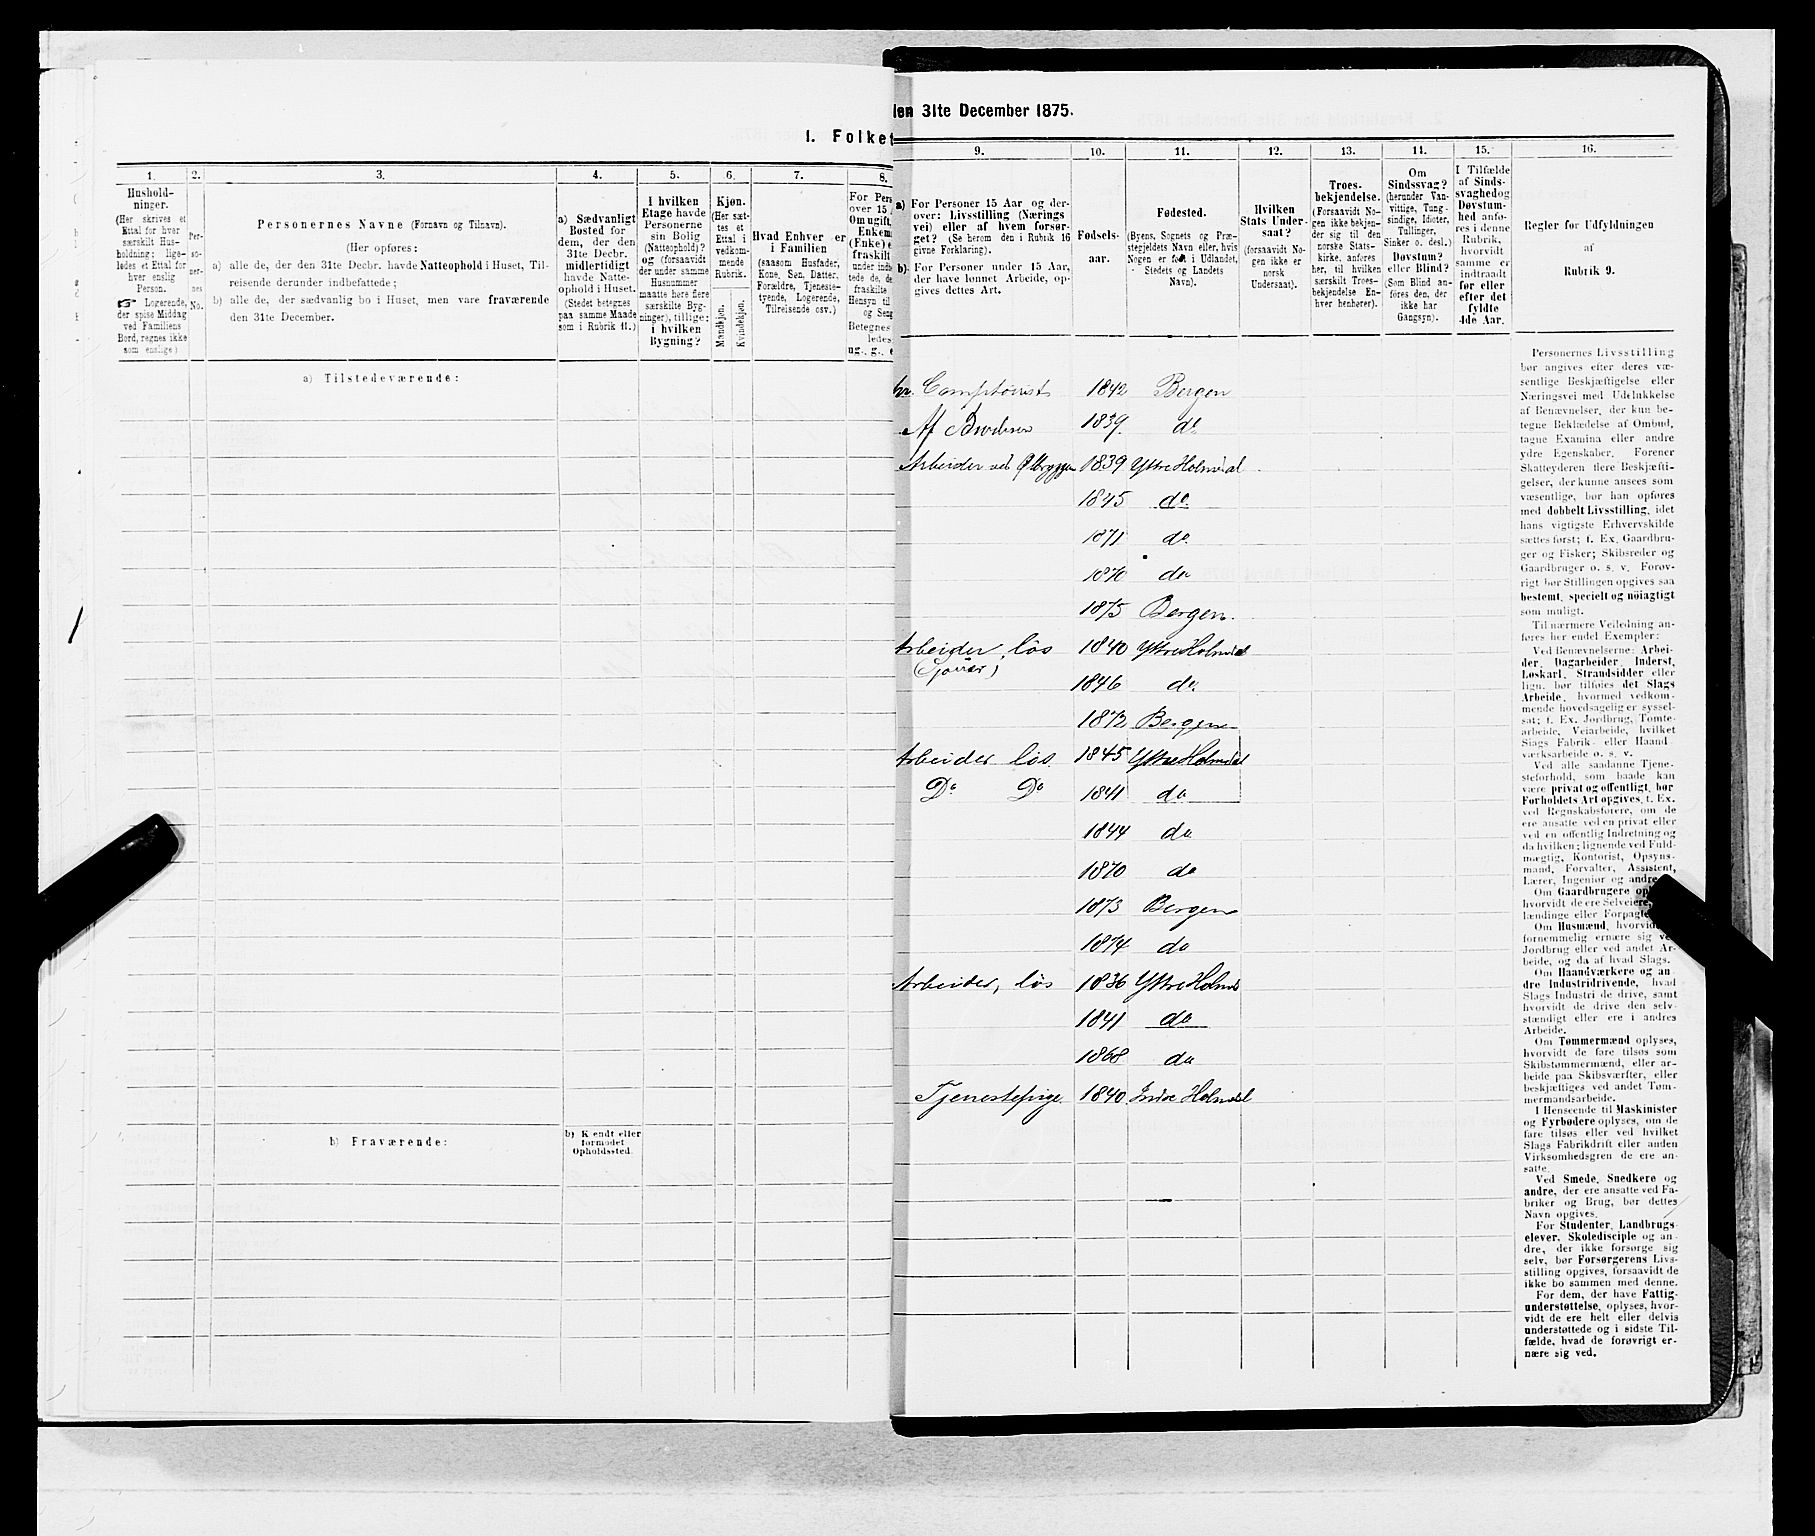 1. Folket
1.
2.
3.
4.
5.
6.
7.
8.
Hushold-
ninger.
(Her skrives et
Ettal for hver
særskilt Hus-
holdning; lige-
ledes et Ettal for
hver enslig
Person.
☞ Logerende,
der spise Middag
ved Familiens
Bord, regnes ikke
som enslige)
Per-
so-
ner-
nes
No.
Personernes Navne (Fornavn og Tilnavn).
(Her opføres:
a) alle de, der den 31te Decbr. havde Natteophold i Huset, Til-
reisende derunder indbefattede;
b) alle de, der sædvanlig bo i Huset, men vare fraværende
den 31te December.
a) Sædvanligt
Bosted for
dem, der den
31te Decbr.
midlertidigt
havde Natte-
ophold i Huset.
(Stedet betegnes
paa samme Maade
som i Rubrik 11.)
I hvilken
Etage havde
Personerne
sin Bolig
(Natteophold)?
og (forsaavidt
der under samme
Husnummer
maatte høre flere
særskilte Byg-
ninger), tillige:
i hvilken
Bygning?
Kjøn.
(Her sæt-
tes et
Ettal i
vedkom-
mende
Rubrik.
Mandkjøn.
Kvindekjøn.
Hvad Enhver er
i Familien
(saasom Husfader,
Kone, Søn, Datter,
Forældre, Tjeneste-
tyende, Logerende,
Tilreisende osv.)
For Pers
over 15 A
Om ugift,
Enkem
(Enke) e
fraskilt
under indb
tede de, de
fraskilte
Hensyn til
og Seng
Betegnes
ledes
ug., g., e
a) Tilstedeværende:
b) Fraværende:
b) Kjendt eller
formodet
Opholdssted.
den 31te December 1875.
9.
10.
11.
12.
13.
14.
15.
16.
a) For Personer 15 Aar og der-
over: Livsstilling (Nærings
vei) eller af hvem forsør-
get? (Se herom den i Rubrik 16
givne Forklaring).
b) For Personer under 15 Aar,
der have lønnet Arbeide, op-
gives dettes Art.
Fødsels-
aar.
Fødested.
(Byens, Sognets og Præ-
stegjeldets Navn eller, hvis
Nogen er født i Udlandet,
Stedets og Landets
Navn).
Hvilken
Stats Under-
saat?
(forsaavidt No-
gen ikke er
norsk
Undersaat).
Troes-
bekjendelse.
(Forsaavidt No-
gen ikke bekjen-
der sig til den
norske Stats-
kirke, anføres
her, til hvilken
særskilt Troes-
bekjendelse En-
hver henhører).
Om
Sindssvag?
(herunder Van-
vittige, Tung-
sindige, Idioter,
Tullinger,
Sinker o. desl.)
Døvstum?
eller Blind?
(Som Blind an-
føres den, der
ikke har
Gangsyn).
I Tilfælde
af Sinds-
svaghed og
Døvstum-
hed anfø-
res i denne
Rubrik,
hvorvidt
samme er
indtraadt
før eller
efter det
fyldte
4de Aar.
Regler for Udfyldningen
af
Rubrik 9.
Comptoirist 1842 Bergen
Af Broderen 1839. do
Arbeider ved 1839 Ytre Holmdal
1845 do.
1871 do
1870 do
1875 Bergen.
Arbeider, løs 1840 Ytre Holmdal
1846 do.
1872 Bergen
Arbeider løs. 1845 Ytre Holmdal
Do Do 1841 do
1844 do
1870 do
1873 Bergen
1874 do
Arbeider, løs 1836 Ytre Holmd
1841 do
1868 do
Tjenestepige 1840 Indre Holmdal
Personernes Livsstilling
bør angives efter deres væ-
sentlige Beskjæftigelse eller
Næringsvei med Udelukkelse
af Benævnelser, der kun be-
tegne Beklædelse af Ombud,
tagne Examina eller andre
ydre Egenskaber. Forener
Skatteyderen flere Beskjæfti-
gelser, der kunne ansees som
væsentlige, bør han opføres
med dobbelt Livsstilling, idet
hans vigtigste Erhvervskilde
sættes først; f. Ex. Gaardbru-
ger og Fisker; Skibsreder og
Gaardbruger o. s. v. Forøv-
rigt bør Stillingen opgives saa
bestemt, specielt og nøiagtigt
som muligt.
Til nærmere Veiledning an-
føres her endel Exempler:
Ved Benævnelserne: Arbei-
der, Dagarbeider, Inderst,
Løskarl, Strandsidder eller
lign. bør tilføies det Slags
Arbeide, hvormed vedkom-
mende hovedsagelig er syssel-
sat; f. Ex. Jordbrug, Tomte-
arbeide, Veiarbeide, hvilket
Slags Fabrik- eller Haand-
værksarbeide o. s. v.
Ved alle saadanne Tjene-
steforhold, som baade kan
være privat og offentligt, bør
Forholdets Art opgives, f. Ex.
ved Regnskabsførere, om de
ere ansatte ved en privat eller
ved en offentlig Indretning og
da hvilken; lignende ved Fuld-
mægtig, Kontorist, Opsyns-
mand, Forvalter, Assistent,
Lærer, Ingeniør og andre.
Om Gaardbrugere op
hvorvidt de ere Selveiere,
lændinge eller Forpagte
Om Husmænd, hvorvid
fornemmelig ernære sig v
Jordbrug eller ved andet Ar-
beide, og da af hvad Slags.
Om Haandværkere og an-
dre Industridrivende, hvad
Slags Industri de drive, samt
hvorvidt de drive den selv-
stændigt eller ere i andres
Arbeide.
Om Tømmermænd oplyses,
hvorvidt de fare tilsøs som
Skibstømmermænd, eller ar-
beide paa Skibsværfter, eller
beskjæftiges ved andet Tøm-
mermandsarbeide.
I Henseende til Maskinister
og Fyrbødere oplyses, om de
fare tilsøs eller ved hvilket
Slags Fabrikdrift eller anden
Virksomhedsgren de ere an-
satte.
Ved Smede, Snedkere og
andre, der ere ansatte ved Fa-
briker og Brug, bør dettes
Navn opgives.
For Studenter, Landbrugs-
elever, Skoledisciple og an-
dre, der ikke forsørge sig
selv, bør Forsørgerens Livs-
stilling opgives, forsaavidt de
ikke bo sammen med denne.
For dem, der have Fattig-
understøttelse, oplyses, hvor-
vidt de ere helt eller delvis
understøttede og i sidste Til-
fælde, hvad de forøvrigt er-
nære sig ved.